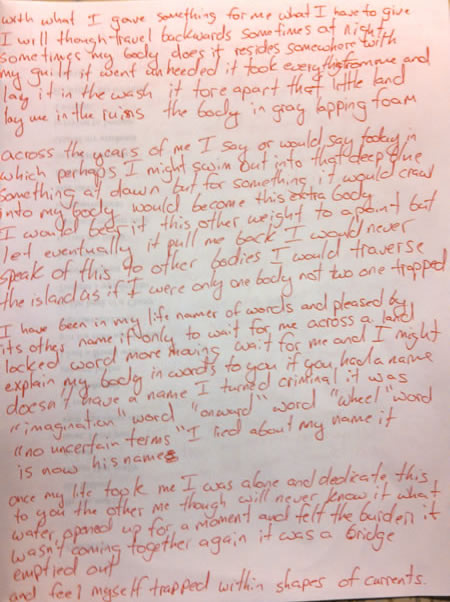 with what I gave something for me what I have to give
I will though travel backwards sometimes at night
sometimes my body does it resides somewhere with
my guilt it went unheeded it took everything from me and
lay it in the wash it tore apart that little land
lay me in the ruins the body in gray lapping foam
across the years of me I say or would say today in
which perhaps I might swim out into that deep blue
something at dawn but for something it would crawl
into my body would become this extra body
I would bear it this other weight to a point but
let eventually it pull me back I would never
speak of this to other bodies I would traverse
the island as if I were only one body not two one trapped
I have been in my life namer of words and pleased by
its other name if only to wait for me across a land
locked word more moving wait for me and I might
explain my body in words to you if you had a name
doesn't have a name I turned criminal it was
"imagination" word "onward" word "wheel" word
"no uncertain terms" I lied about my name it
is now his name
once my life took me I was alone and dedicate this
to you the other me though will never know it what
water opened up for a moment and felt the burden it
wasn't coming together again it was a bridge
emptied out
and feel myself trapped within shapes of currents.